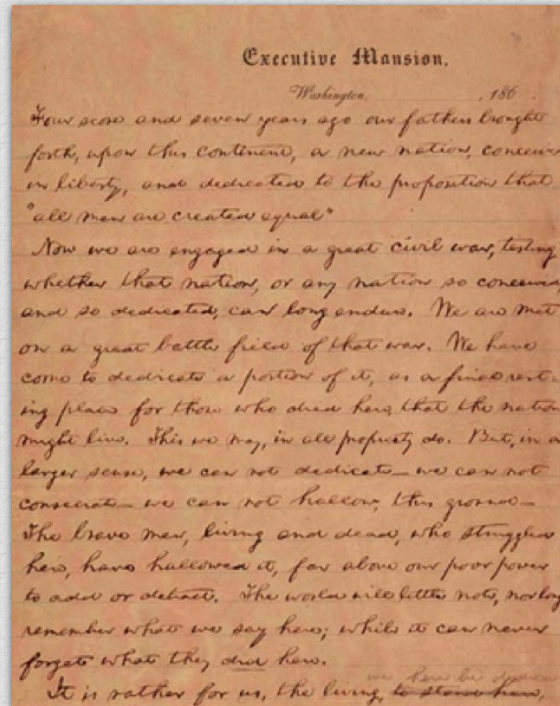 Executive Mansion,
Washington, , 186
Four score and seven years ago our fathers brought
forth, upon this continent, a new nation, conceiv
in liberty, and dedicated to the proposition that
"all men are created equal"
Now we are engaged in a great civil war, testing
whether that nation, or any nation so conceived,
and so dedicated, can long endure. We are met
on a great battle field of that war. We have
come to dedicate a portion of it, as a final rest-
ing place for those who died here, that the nation
might live. This we may, in all propriety do. But, in a
larger sense, we can not dedicate — we can not
consecrate — we can not hallow, this ground —
The brave men, living and dead, who struggled
here, have hallowed it, far above our poor power
to add or detract. The world will little note, nor long
remember what we say here; while it can never
forget what they did here.
we here be dedica
It is rather for us, the living, to stand here,